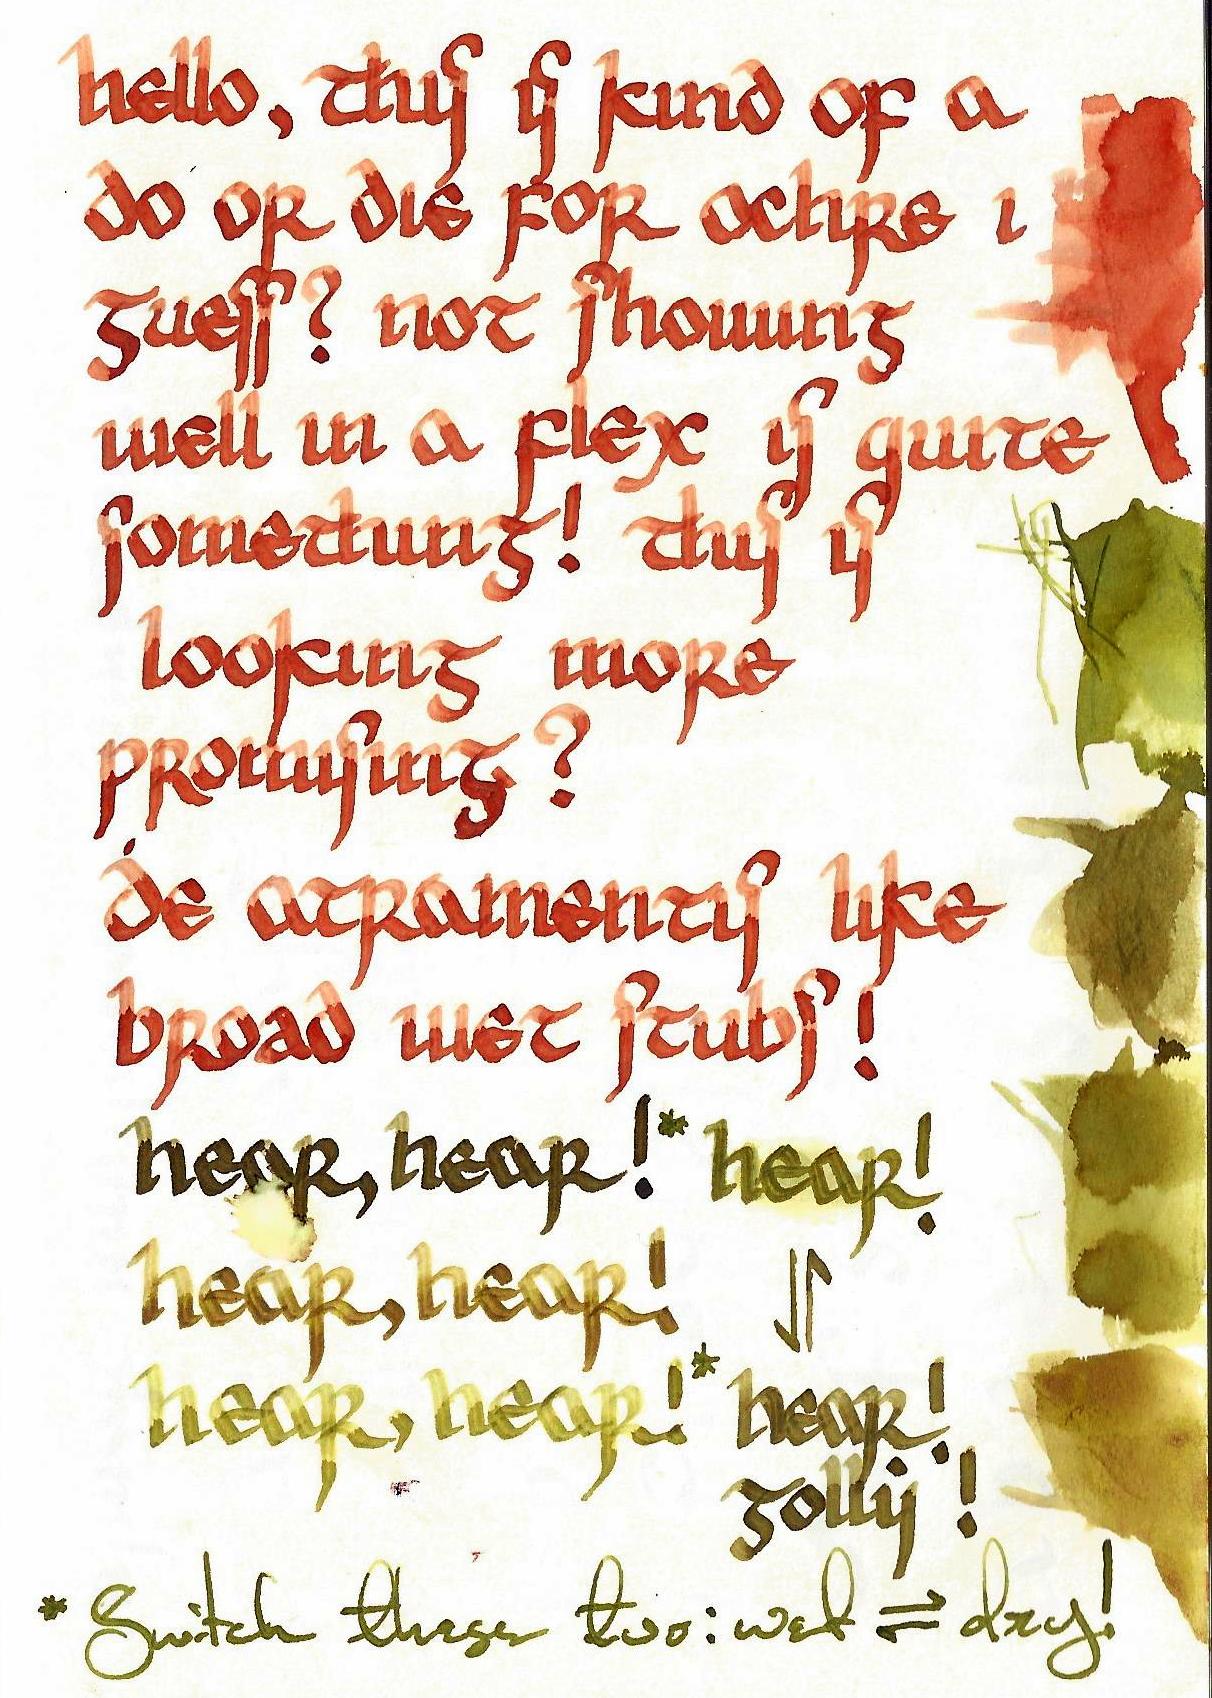 hello, this is kind of a
do or die for ochre i
guess? not showing
well in a flex is quite
something! this is
looking more
promising?
de atramentis like
broad wet stubs!
hear, hear!* hear!
hear, hear! ⇌
hear, hear!* hear!
golly!
* Switch these two: wet ⇌ dry!